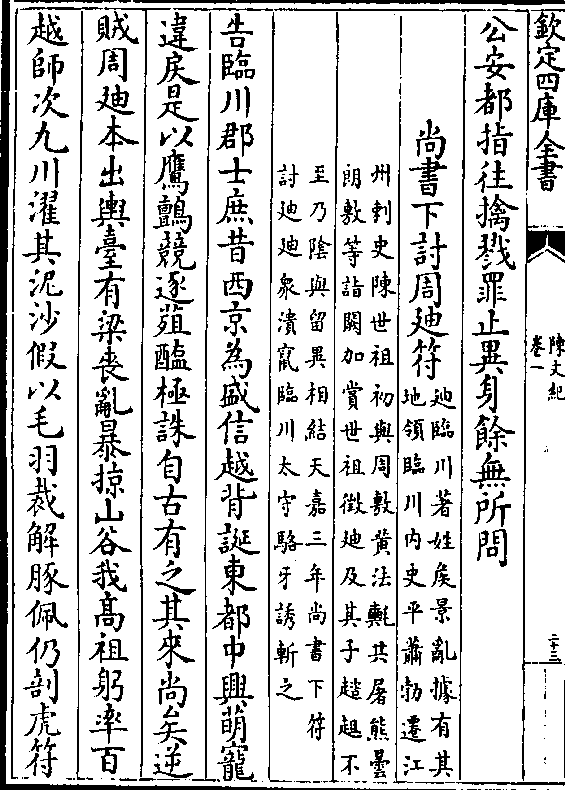 欽定四庫全書
陳文紀
卷一
二十三
公安都指往擒戮罪止異身餘無所問
尚書下討周廸符
廸臨川著姓矦景亂據有其
地領臨川内史平蕭勃遷江
州刺史陳世祖初與周敷黄法𣰰共屠熊曇
朗敷等詣闕加賞世祖徵廸及其子趦趄不
至乃陰與留異相結天嘉三年尚書下符
討廸廸衆潰竄臨川太守駱牙誘斬之
告臨川郡士庶昔西京為盛信越背誕東都中興萌寵
違戾是以鷹鸇競逐葅醢極誅自古有之其來尚矣逆
賊周廸本出輿臺有梁喪亂暴掠山谷我髙祖躬率百
越師次九川濯其泥沙假以毛羽裁解豚佩仍剖虎符